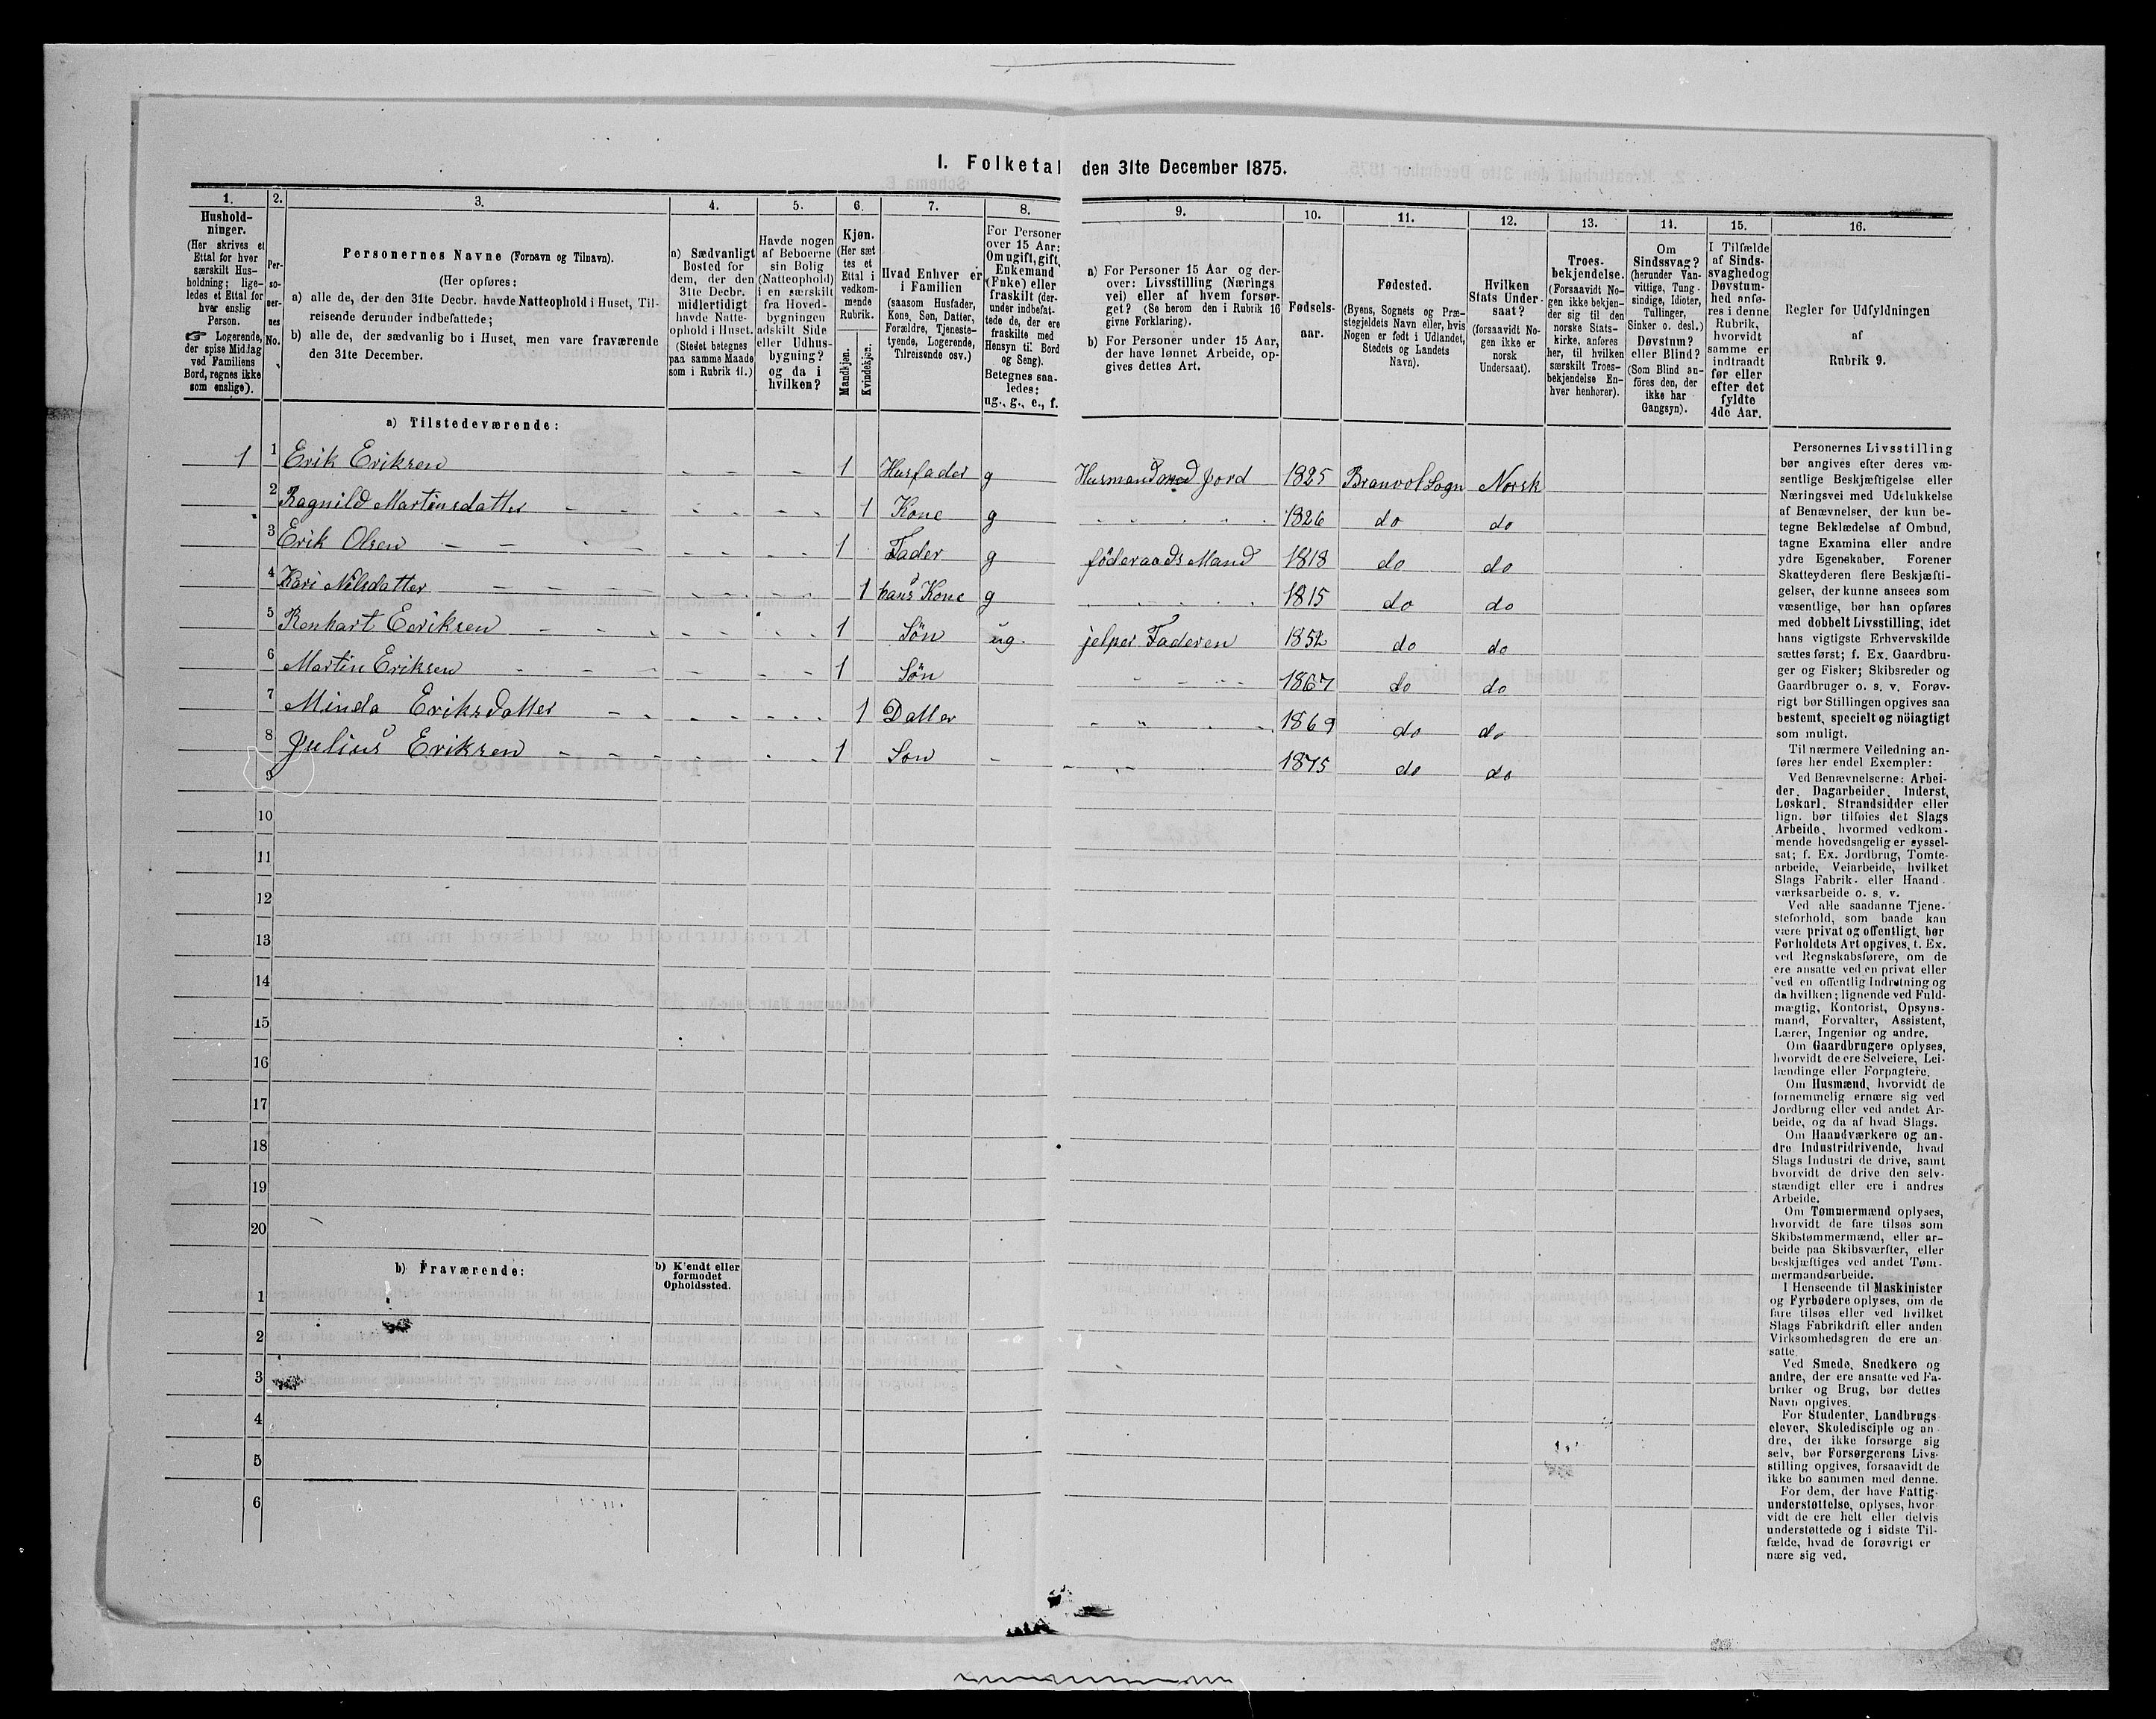 I. Folketal den 31te December 1875.
1.
Hushold-
ninger.
(Her skrives et
Ettal for hver
særskilt Hus-
holdning; lige-
ledes et Ettal for
hver enslig
Person.
☞ Logerende,
der spise Middag
ved Familiens
Bord, regnes ikke
som enslige).
2.
Per-
so-
ner-
nes
No.
3.
Personernes Navne (Fornavn og Tilnavn).
(Her opføres:
a) alle de, der den 31te Decbr. havde Natteophold i Huset, Til-
reisende derunder indbefattede;
b) alle de, der sædvanlig bo i Huset, men vare fraværende
den 31te December.
4.
a) Sædvanligt
Bosted for
dem, der den
31te Decbr.
midlertidigt
havde Natte-
ophold i Huset.
(Stedet betegnes
paa samme Maade
som i Rubrik 11.)
5.
Havde nogen
af Beboerne
sin Bolig
(Natteophold)
i en særskilt
fra Hoved-
bygningen
adskilt Side
eller Udhus-
bygning?
og da i
hvilken?
6.
Kjøn.
(Her sæt
tes et
Ettal i
vedkom-
mende
Rubrik.
Mandkjøn.
Kvindekjøn.
7.
Hvad Enhver er
i Familien
(saasom Husfader,
Kone, Søn, Datter,
Forældre, Tjeneste-
tyende, Logerende,
Tilreisende osv.)
8.
For Personer
over 15 Aar:
Om ugift, gift,
Enkemand
(Enke) eller
fraskilt (der-
under indbefat-
tede de, der ere
fraskilte med
Hensyn til Bord
og Seng).
Betegnes saa-
ledes:
ug., g., e., f.
9.
a) For Personer 15 Aar og der-
over: Livsstilling (Nærings
vei) eller af hvem forsør-
get? (Se herom den i Rubrik 16
givne Forklaring).
b) For Personer under 15 Aar,
der have lønnet Arbeide, op-
gives dettes Art.
10.
Fødsels-
aar.
11.
Fødested.
(Byens, Sognets og Præ-
stegjeldets Navn eller, hvis
Nogen er født i Udlandet,
Stedets og Landets
Navn).
12.
Hvilken
Stats Under-
saat?
(forsaavidt No-
gen ikke er
norsk
Undersaat).
13.
Troes-
bekjendelse.
(Forsaavidt No-
gen ikke bekjen-
der sig til den
norske Stats-
kirke, anføres
her, til hvilken
særskilt Troes-
bekjendelse En-
hver henhører).
14.
Om
Sindssvag?
(herunder Van-
vittige, Tung-
sindige, Idioter,
Tullinger,
Sinker o. desl.)
Døvstum?
eller Blind?
(Som Blind an-
føres den, der
ikke har
Gangsyn).
15.
I Tilfælde
af Sinds-
svaghed og
Døvstum-
hed anfø-
res i denne
Rubrik,
hvorvidt
samme er
indtraadt
før eller
efter det
fyldte
4de Aar.
16.
Regler for Udfyldningen
af
Rubrik 9.
a) Tilstedeværende:
1 1 Erik Eriksen 1 Husfader g Husmand med Jord 1825 Branvol Sogn Norsk
2 Ragnild Martinsdatter 1 Kone g 1826 do do
3 Erik Olsen 1 Fader g föderaads Mand 1818 do do
4 Kari Nilsdatter 1 hans Kone g 1815 do do
5 Renhart Eeriksen 1 Sön ug. jelper Faderen 1852 do do
6 Martin Eriksen 1 Sön 1867 do do
7 Minda Eriksdatter 1 Datter 1869 do do
8 Julius Eriksen 1 Son 1875 do do
9
10
11
12
13
14
15
16
17
18
19
20
b) Fraværende:
b) Kjendt eller
formodet
Opholdssted.
1
2
3
4
5
6
Personernes Livsstilling
bør angives efter deres væ-
sentlige Beskjæftigelse eller
Næringsvei med Udelukkelse
af Benævnelser, der kun be-
tegne Beklædelse af Ombud,
tagne Examina eller andre
ydre Egenskaber. Forener
Skatteyderen flere Beskjæfti-
gelser, der kunne ansees som
væsentlige, bør han opføres
med dobbelt Livsstilling, idet
hans vigtigste Erhvervskilde
sættes først; f. Ex. Gaardbru-
ger og Fisker; Skibsreder og
Gaardbruger o. s. v. Forøv-
rigt bør Stillingen opgives saa
bestemt, specielt og nöiagtigt
som muligt.
Til nærmere Veiledning an-
føres her endel Exempler:
Ved Benævnelserne: Arbei-
der, Dagarbeider, Inderst,
Løskarl, Strandsidder eller
lign. bør tilføies det Slags
Arbeide, hvormed vedkom-
mende hovedsagelig er syssel-
sat; f. Ex. Jordbrug, Tomte-
arbeide, Veiarbeide, hvilket
Slags Fabrik- eller Haand-
værksarbeide o. s. v.
Ved alle saadanne Tjene-
steforhold, som baade kan
være privat og offentligt, bør
Forholdets Art opgives, f. Ex.
ved Regnskabsførere, om de
ere ansatte ved en privat eller
ved en offentlig Indretning og
da hvilken; lignende ved Fuld-
mægtig, Kontorist, Opsyns-
mand, Forvalter, Assistent,
Lærer, Ingeniør og andre.
Om Gaardbrugere oplyses,
hvorvidt de ere Selveiere, Lei-
lændinge eller Forpagtere.
Om Husmænd, hvorvidt de
fornemmelig ernære sig ved
Jordbrug eller ved andet Ar-
beide, og da af hvad Slags.
Om Haandværkere og an-
dre Industridrivende, hvad
Slags Industri de drive, samt
hvorvidt de drive den selv-
stændigt eller ere i andres
Arbeide.
Om Tømmermænd oplyses,
hvorvidt de fare tilsøs som
Skibstømmermænd, eller ar-
beide paa Skibsværfter, eller
beskjæftiges ved andet Tøm-
mermandsarbeide.
I Henseende til Maskinister
og Fyrbødere oplyses, om de
fare tilsøs eller ved hvilket
Slags Fabrikdrift eller anden
Virksomhedsgren de ere an-
satte.
Ved Smede, Snedkere og
andre, der ere ansatte ved Fa-
briker og Brug, bør dettes
Navn opgives.
For Studenter, Landbrugs-
elever, Skoledisciple og an-
dre, der ikke forsørge sig
selv, bør Forsørgerens Livs-
stilling opgives, forsaavidt de
ikke bo sammen med denne.
For dem, der have Fattig-
understøttelse, oplyses, hvor-
vidt de ere helt eller delvis
understøttede og i sidste Til-
fælde, hvad de forøvrigt er
nære sig ved.